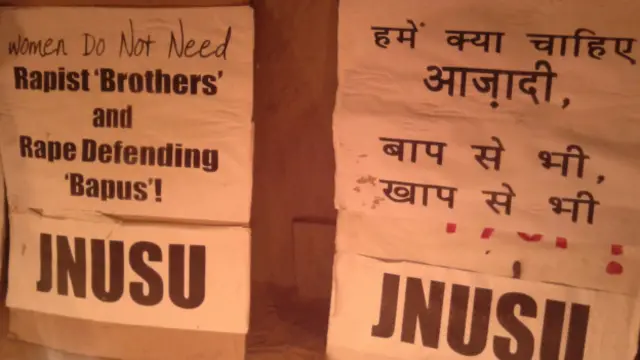 women Do Not Need
Rapist 'Brothers'
and
Rape Defending
'Bapus'!
JNUSU
हमें क्या चाहिए
आज़ादी,
बाप से भी,
खाप से भी
JNUSU